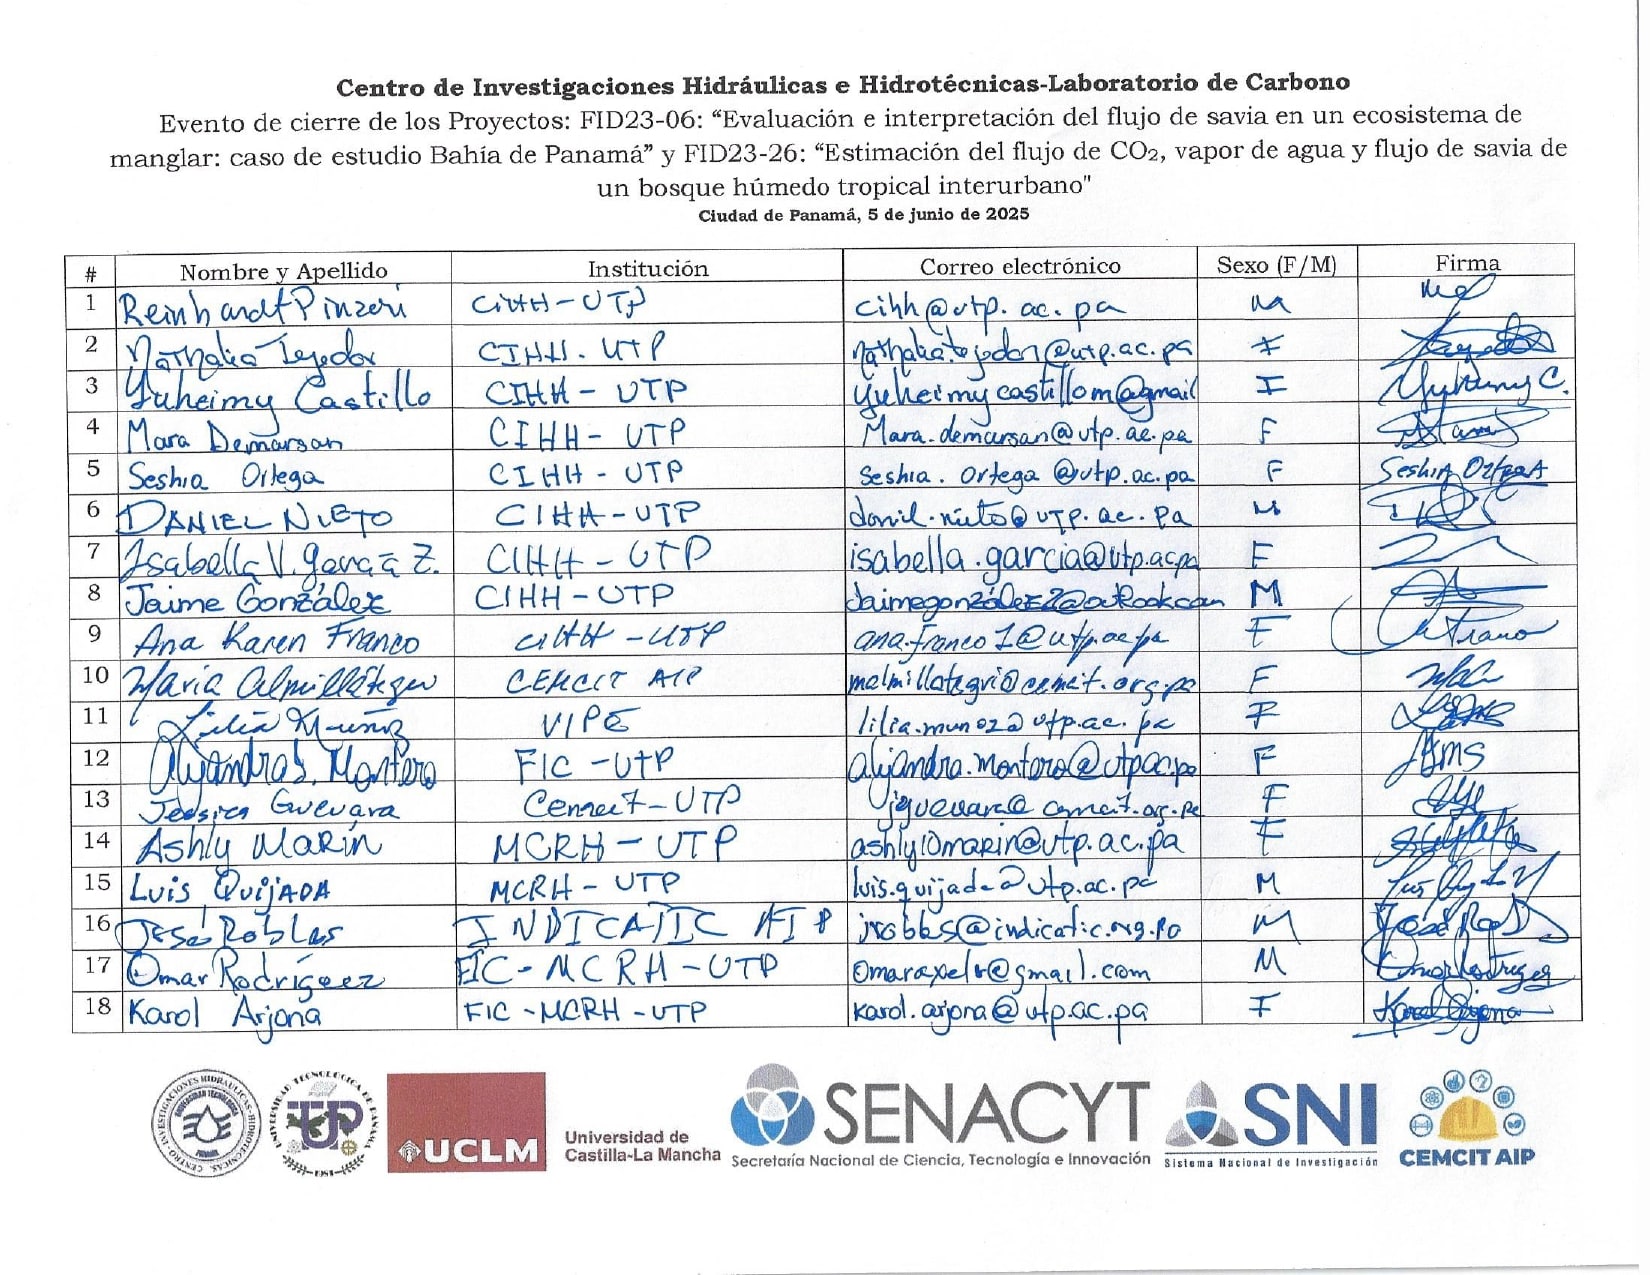 Centro de Investigaciones Hidráulicas e Hidrotécnicas-Laboratorio de Carbono
Evento de cierre de los Proyectos: FID23-06: “Evaluación e interpretación del flujo de savia en un ecosistema de
manglar: caso de estudio Bahía de Panamá” y FID23-26: “Estimación del flujo de CO₂, vapor de agua y flujo de savia de
un bosque húmedo tropical interurbano"
Ciudad de Panamá, 5 de junio de 2025
# Nombre y Apellido Institución Correo electrónico Sexo (F/M) Firma
1 Reinhardt Pinzón CIHH-UTP cihh@utp.ac.pa M
2 Nathalia Tejedor CIHH-UTP nathalia.tejedor@utp.ac.pa F
3 Yuheimy Castillo CIHH-UTP yuheimycastillom@gmail F Yuheimy C.
4 Mara Demarsan CIHH-UTP Mara.demarsan@utp.ac.pa F
5 Seshia Ortega CIHH-UTP Seshia.Ortega@utp.ac.pa F Seshia Ortega
6 DANIEL NIETO CIHH-UTP M
7 Isabella V. García Z. CIHH-UTP isabella.garcia@utp.ac.pa F
8 Jaime González CIHH-UTP Jaimegonzález2@outlook.com M
9 Ana Karen Franco CIHH-UTP ana.franco1@utp.ac.pa F
10 María CEMCIT AIP F
11 Lilia Muñoz VIPE lilia.munoz@utp.ac.pa F
12 Alejandra S. Montero FIC-UTP alejandra.montero@utp.ac.pa F
13 Jessica Guevara Cemcit-UTP jguevara@cemcit.org.pa F
14 Ashly Marín MCRH-UTP ashly10marin@utp.ac.pa F
15 Luis Quijada MCRH-UTP luis.quijada@utp.ac.pa M
16 José Robles INDICATIC AIP M José Robles
17 Omar Rodríguez FIC-MCRH-UTP omaraxelr@gmail.com M Omar Rodríguez
18 Karol Arjona FIC-MCRH-UTP karol.arjona@utp.ac.pa F Karol Arjona
UTP
UCLM
Universidad de
Castilla-La Mancha
SENACYT
Secretaría Nacional de Ciencia, Tecnología e Innovación
SNI
Sistema Nacional de Investigación
CEMCIT AIP